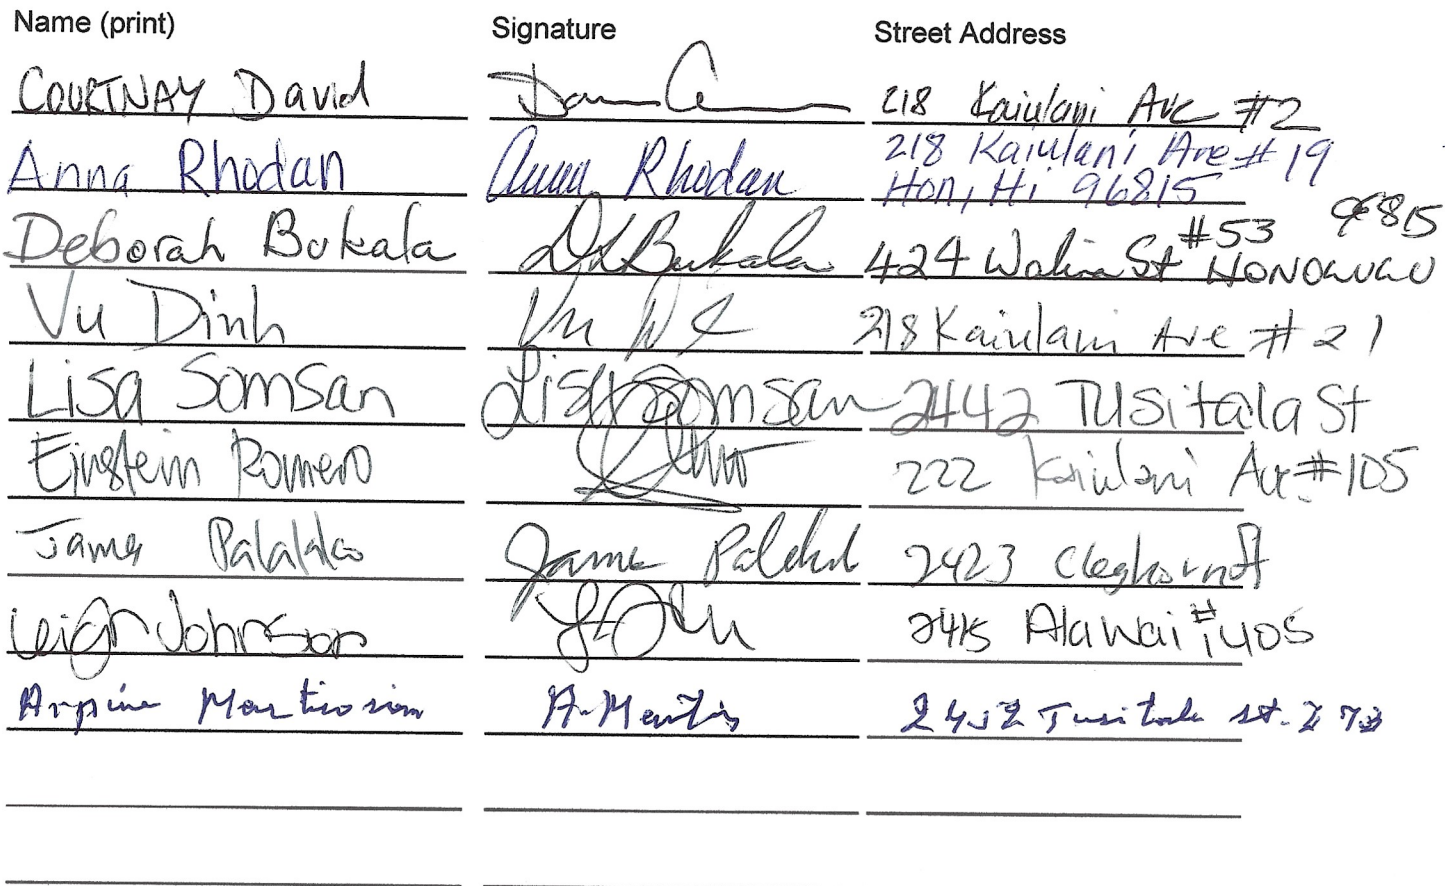 Name (print) Signature Street Address
COURTNAY David 218 Kaiulani Ave #2
Anna Rhodan Anna Rhodan 218 Kaiulani Ave #19
Hon, Hi 96815
Deborah Bukala DL Bukala 424 Walina St #53 HONOLULU 96815
Vu Dinh Vu 218 Kaiulani Ave #21
Lisa Somsan Lisa Somsan 2442 Tusitala St
Einstein Romero 222 Kaiulani Ave #105
James James 2423 Cleghorn St
Leigh Johnson 2415 Alawai #1405
Arpine A. 2452 Tusitala st.